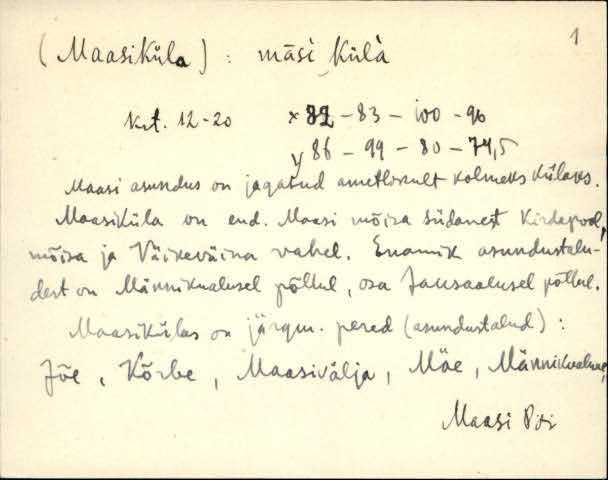 1
(Maasiküla) : māsi külà
Krt. 12-20 x 82 - 83 - 100 - 96
y 86 - 99 - 80 - 74,5
Maasi asundus on jagatud ametlikult kolmeks külaks.
Maasiküla on end. Maasi mõisa südamest kirdepool,
mõisa ja Väikeväina vahel. Enamik asundustalu-
dest on Männikualusel põllul, osa Jaussaalusel põllul.
Maasikülas on järgm. pered (asundustalud) :
Jõe, Kõrbe, Maasivälja, Mäe, Männikualuse,
Maasi